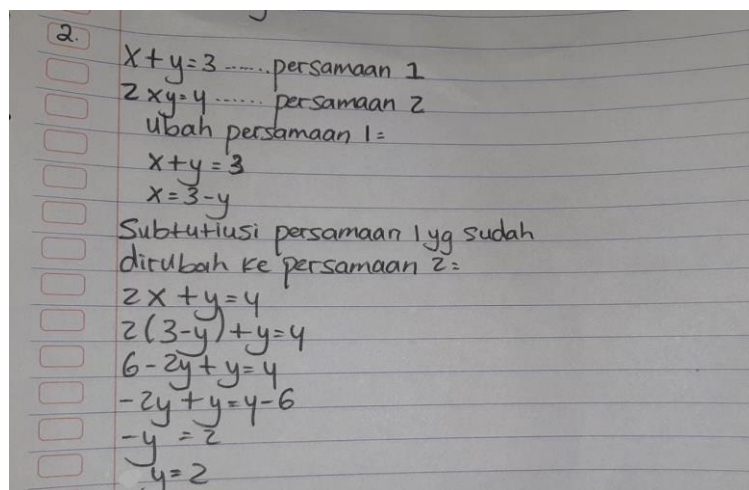 2.
x+y=3 ...... persamaan 1
2xy=4 ...... persamaan 2
Ubah persamaan 1=
x+y=3
x=3-y
Subtutiusi persamaan 1 yg sudah
dirubah ke persamaan 2=
2x+y=4
2(3-y)+y=4
6-2y+y=4
-2y+y=4-6
-y=2
y=2